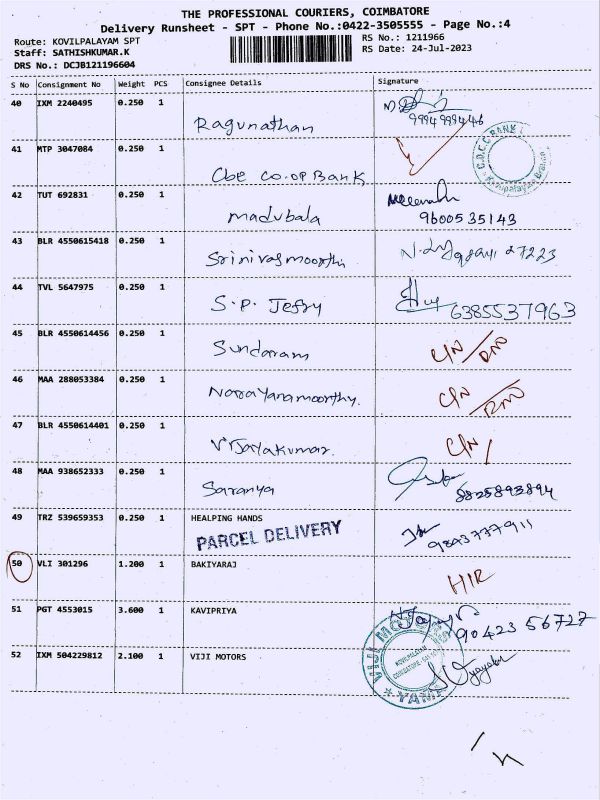 THE PROFESSIONAL COURIERS, COIMBATORE
Delivery Runsheet - SPT - Phone No.:0422-3505555 - Page No.:4
Route: KOVILPALAYAM SPT
RS No.: 1211966
Staff: SATHISHKUMAR.K
RS Date: 24-Jul-2023
DRS No.: DCJB121196604
S No Consignment No Weight PCS Consignee Details Signature
40 IXM 2240495 0.250 1
Ragunathan
41 MTP 3047084 0.250 1
Cbe co.op Bank
C.D.C.C BANK
42 TUT 692831 0.250 1
madubala
9600535143
43 BLR 4550615418 0.250 1
Srinivasmoorthi
44 TVL 5647975 0.250 1
S.P. Jefry
6385537963
45 BLR 4550614456 0.250 1
Sundaram
C/N
46 MAA 288053384 0.250 1
Narayanamoorthy.
C/N
47 BLR 4550614401 0.250 1
Vijayakumar.
C/N
48 MAA 938652333 0.250 1
Saranya
8825893894
49 TRZ 539659353 0.250 1 HEALPING HANDS
PARCEL DELIVERY
50 VLI 301296 1.200 1 BAKIYARAJ
51 PGT 4553015 3.600 1 KAVIPRIYA
90423 56727
52 IXM 504229812 2.100 1 VIJI MOTORS
VIJI MOTORS
KOVILPALAYAM
YAMAHA